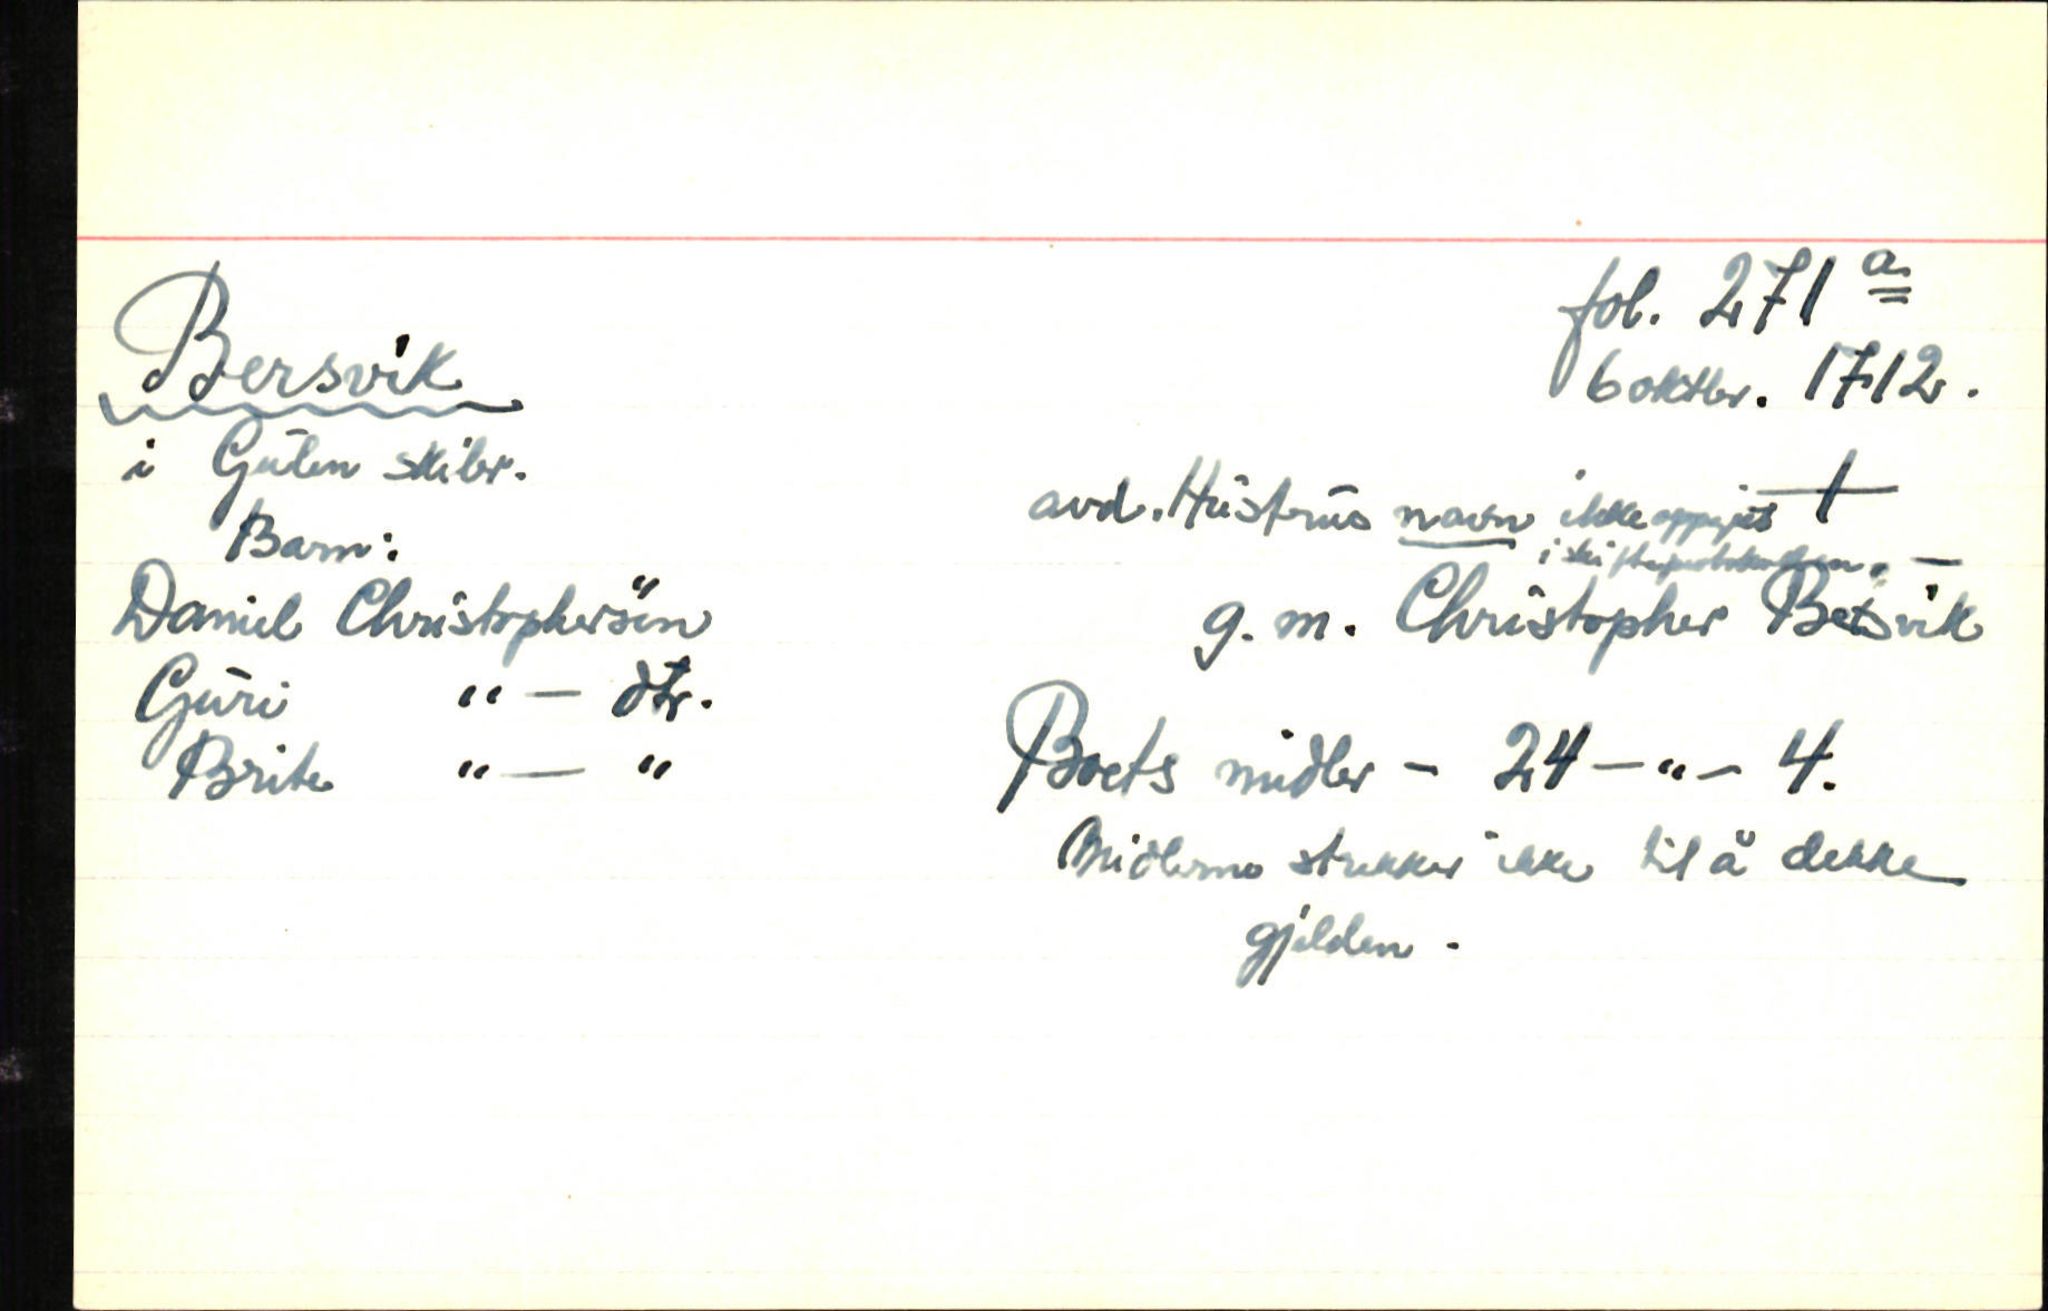 fol. 271 a
6 oktbr. 1712.
Bersvik
i Gulen skibr.
Barn:
Daniel Christophersen "
Guri " — dtr.
Brite " — "
avd. Hustrus navn ikke oppgit †
i skifteprotokollen. —
g. m. Christopher Betsvik
Boets midler - 24 - " - 4.
Midlerne strekker ikke til å dekke
gjelden -